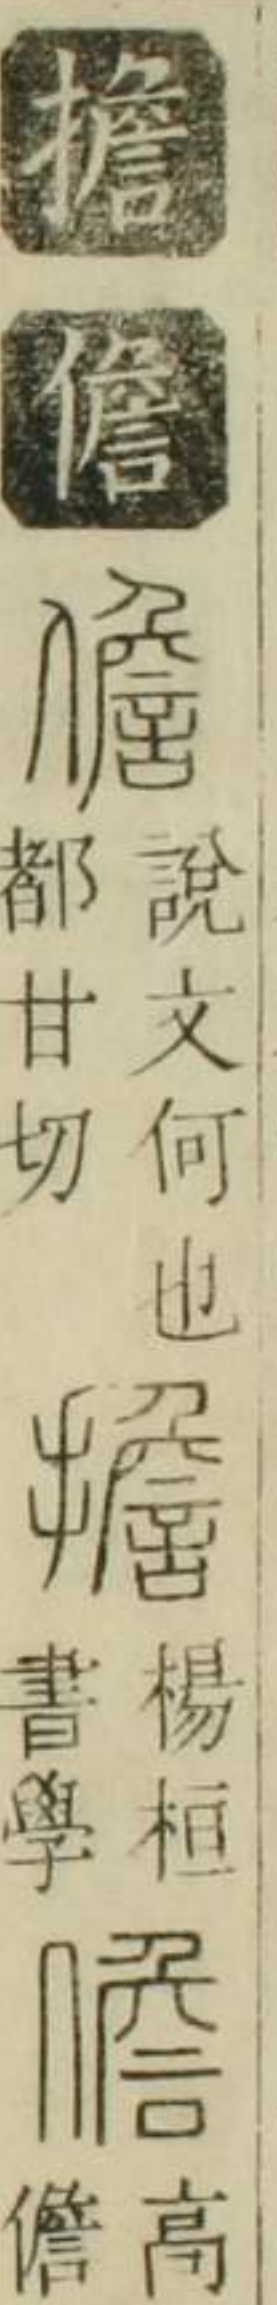 擔
儋
儋
說文何也
都甘切
擔
楊桓
書學
儋
高
儋